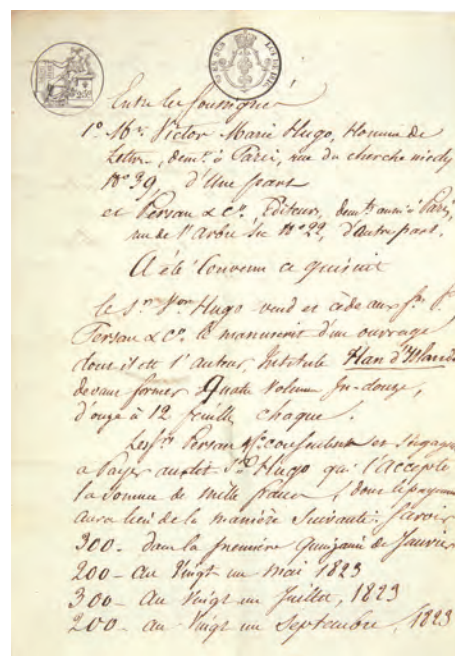 Entre les soussignés
1° Mr. Victor Marie Hugo, Homme de
Lettres, demt. à Paris, rue du cherche midy
N° 39, d'Une part
et Persan & Cie. Editeurs, demt. aussi à Paris,
rue de l'arbre Sec N° 22, d'autre part.
A été Convenu ce qui suit
le Sr. Vor. Hugo vend et cède aux Srs.
Persan & Cie. le manuscrit d'un ouvrage
dont il est l'auteur, Intitulé Han d'Islande
devant former Quatre Volumes in-douze,
d'onze à 12 feuilles chaque.
Les Srs. Persan & Cie. consentent et s'engagent
a payer audit Sr. Hugo qui l'accepte
la somme de mille francs, dont le payement
aura lieu de la manière Suivante. Savoir
300 - dans la première quinzaine de Janvier
200 - au Vingt un mai 1823
300 - au Vingt un Juillet, 1823
200 - au Vingt un Septembre, 1823